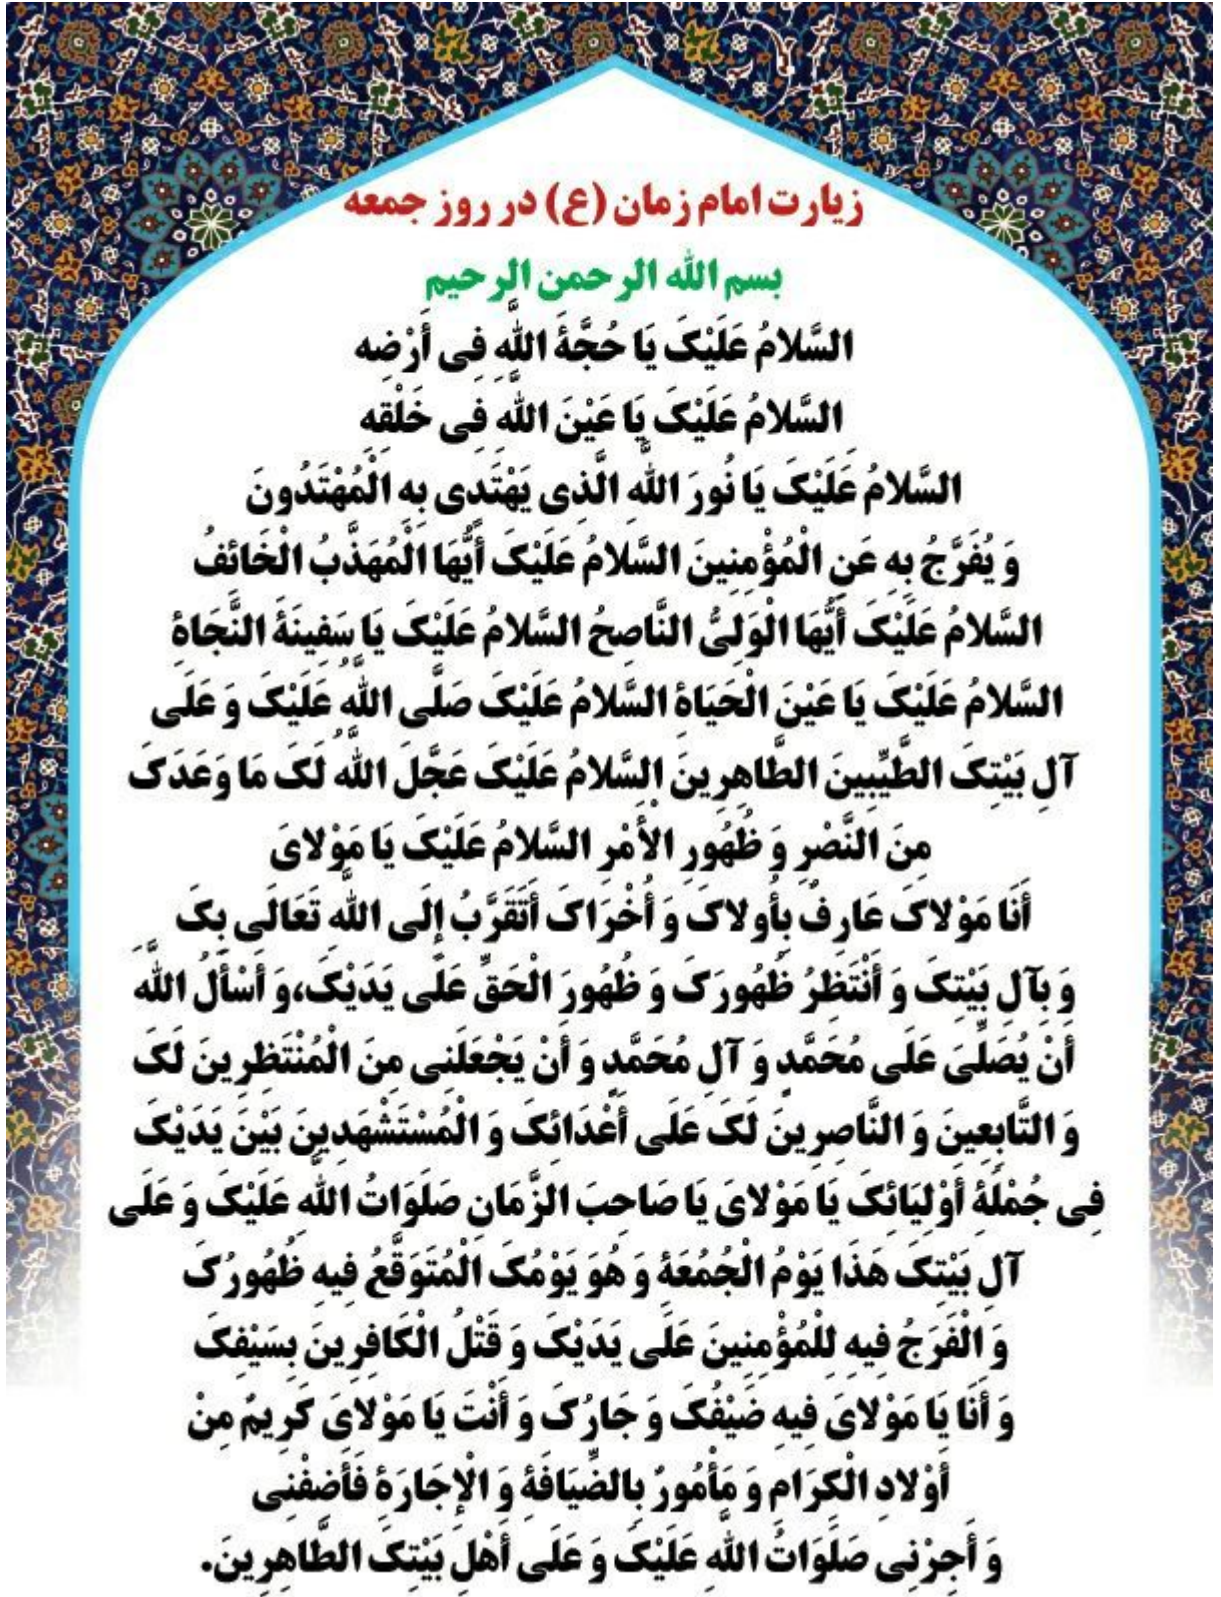 زیارت امام زمان (ع) در روز جمعه
بسم الله الرحمن الرحیم
السَّلامُ عَلَیْکَ یَا حُجَّةَ اللَّهِ فِی أَرْضِهِ
السَّلامُ عَلَیْکَ یَا عَیْنَ اللَّهِ فِی خَلْقِهِ
السَّلامُ عَلَیْکَ یَا نُورَ اللَّهِ الَّذِی یَهْتَدِی بِهِ الْمُهْتَدُونَ
وَ یُفَرَّجُ بِهِ عَنِ الْمُؤْمِنِینَ السَّلامُ عَلَیْکَ أَیُّهَا الْمُهَذَّبُ الْخَائِفُ
السَّلامُ عَلَیْکَ أَیُّهَا الْوَلِیُّ النَّاصِحُ السَّلامُ عَلَیْکَ یَا سَفِینَةَ النَّجَاةِ
السَّلامُ عَلَیْکَ یَا عَیْنَ الْحَیَاةِ السَّلامُ عَلَیْکَ صَلَّی اللَّهُ عَلَیْکَ وَ عَلَی
آلِ بَیْتِکَ الطَّیِّبِینَ الطَّاهِرِینَ السَّلامُ عَلَیْکَ عَجَّلَ اللَّهُ لَکَ مَا وَعَدَکَ
مِنَ النَّصْرِ وَ ظُهُورِ الْأَمْرِ السَّلامُ عَلَیْکَ یَا مَوْلایَ
أَنَا مَوْلاکَ عَارِفٌ بِأُولاکَ وَ أُخْرَاکَ أَتَقَرَّبُ إِلَی اللَّهِ تَعَالَی بِکَ
وَ بِآلِ بَیْتِکَ وَ أَنْتَظِرُ ظُهُورَکَ وَ ظُهُورَ الْحَقِّ عَلَی یَدَیْکَ،وَ أَسْأَلُ اللَّهَ
أَنْ یُصَلِّیَ عَلَی مُحَمَّدٍ وَ آلِ مُحَمَّدٍ وَ أَنْ یَجْعَلَنِی مِنَ الْمُنْتَظِرِینَ لَکَ
وَ التَّابِعِینَ وَ النَّاصِرِینَ لَکَ عَلَی أَعْدَائِکَ وَ الْمُسْتَشْهَدِینَ بَیْنَ یَدَیْکَ
فِی جُمْلَةِ أَوْلِیَائِکَ یَا مَوْلایَ یَا صَاحِبَ الزَّمَانِ صَلَوَاتُ اللَّهِ عَلَیْکَ وَ عَلَی
آلِ بَیْتِکَ هَذَا یَوْمُ الْجُمُعَةِ وَ هُوَ یَوْمُکَ الْمُتَوَقَّعُ فِیهِ ظُهُورُکَ
وَ الْفَرَجُ فِیهِ لِلْمُؤْمِنِینَ عَلَی یَدَیْکَ وَ قَتْلُ الْکَافِرِینَ بِسَیْفِکَ
وَ أَنَا یَا مَوْلایَ فِیهِ ضَیْفُکَ وَ جَارُکَ وَ أَنْتَ یَا مَوْلایَ کَرِیمٌ مِنْ
أَوْلادِ الْکِرَامِ وَ مَأْمُورٌ بِالضِّیَافَةِ وَ الْإِجَارَةِ فَأَضِفْنِی
وَ أَجِرْنِی صَلَوَاتُ اللَّهِ عَلَیْکَ وَ عَلَی أَهْلِ بَیْتِکَ الطَّاهِرِینَ.